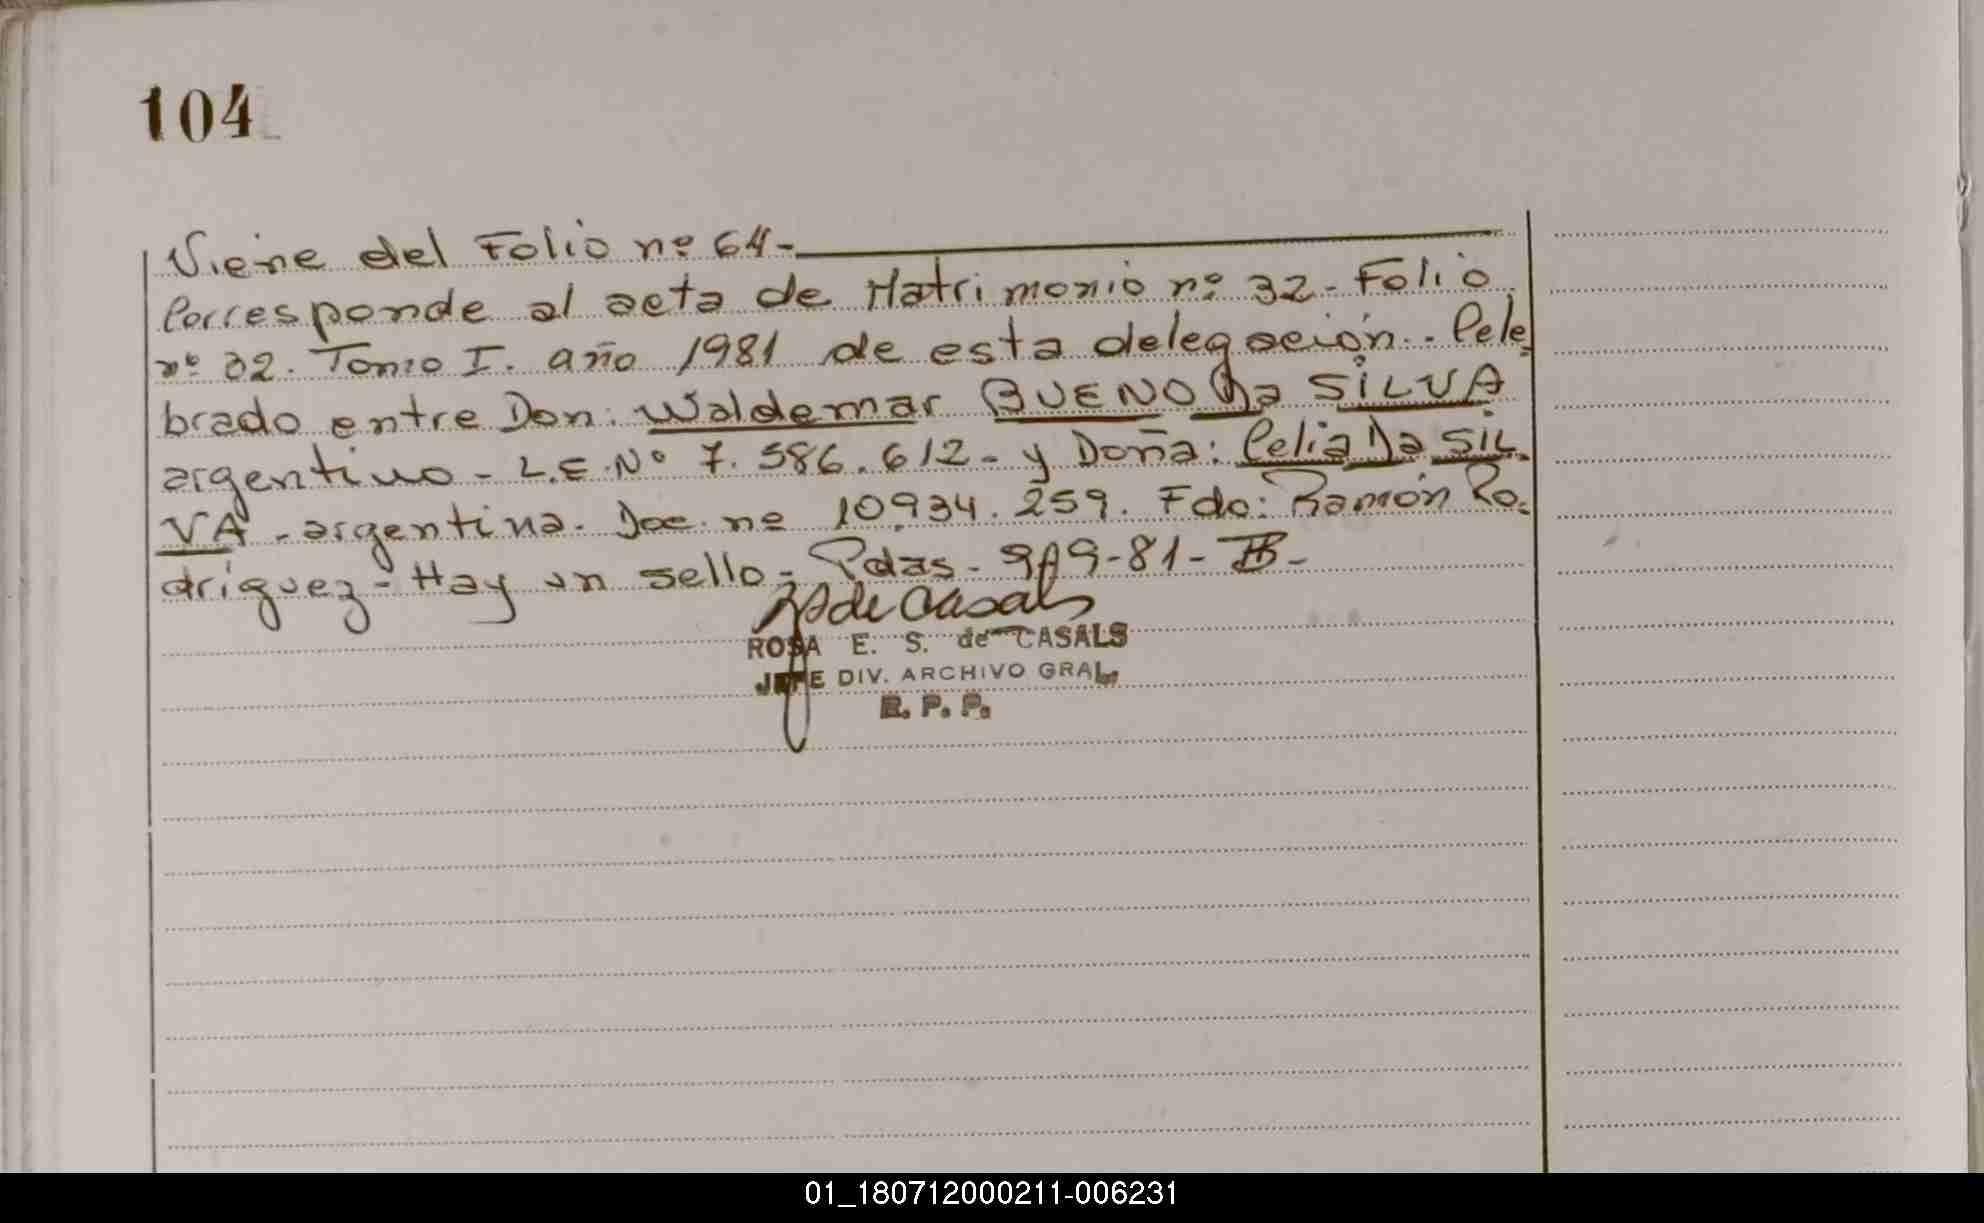 104
Viene del Folio nº 64-
Corresponde al acta de Matrimonio nº 32- Folio
nº 32. Tomo I. año 1981 de esta delegación.. Cele-
brado entre Don: Waldemar BUENO Da SILVA
argentino - L.E.Nº 7.586.612- y Doña: Celia Da SIL-
VA - argentina. Doc. nº 10.934.259. Fdo: Ramón Ro-
driguez - Hay un sello - Pdas - 9-81-
de Casals
ROSA E. S. de CASALS
JEFE DIV. ARCHIVO GRAL.
R. P. P.
01_180712000211-006231